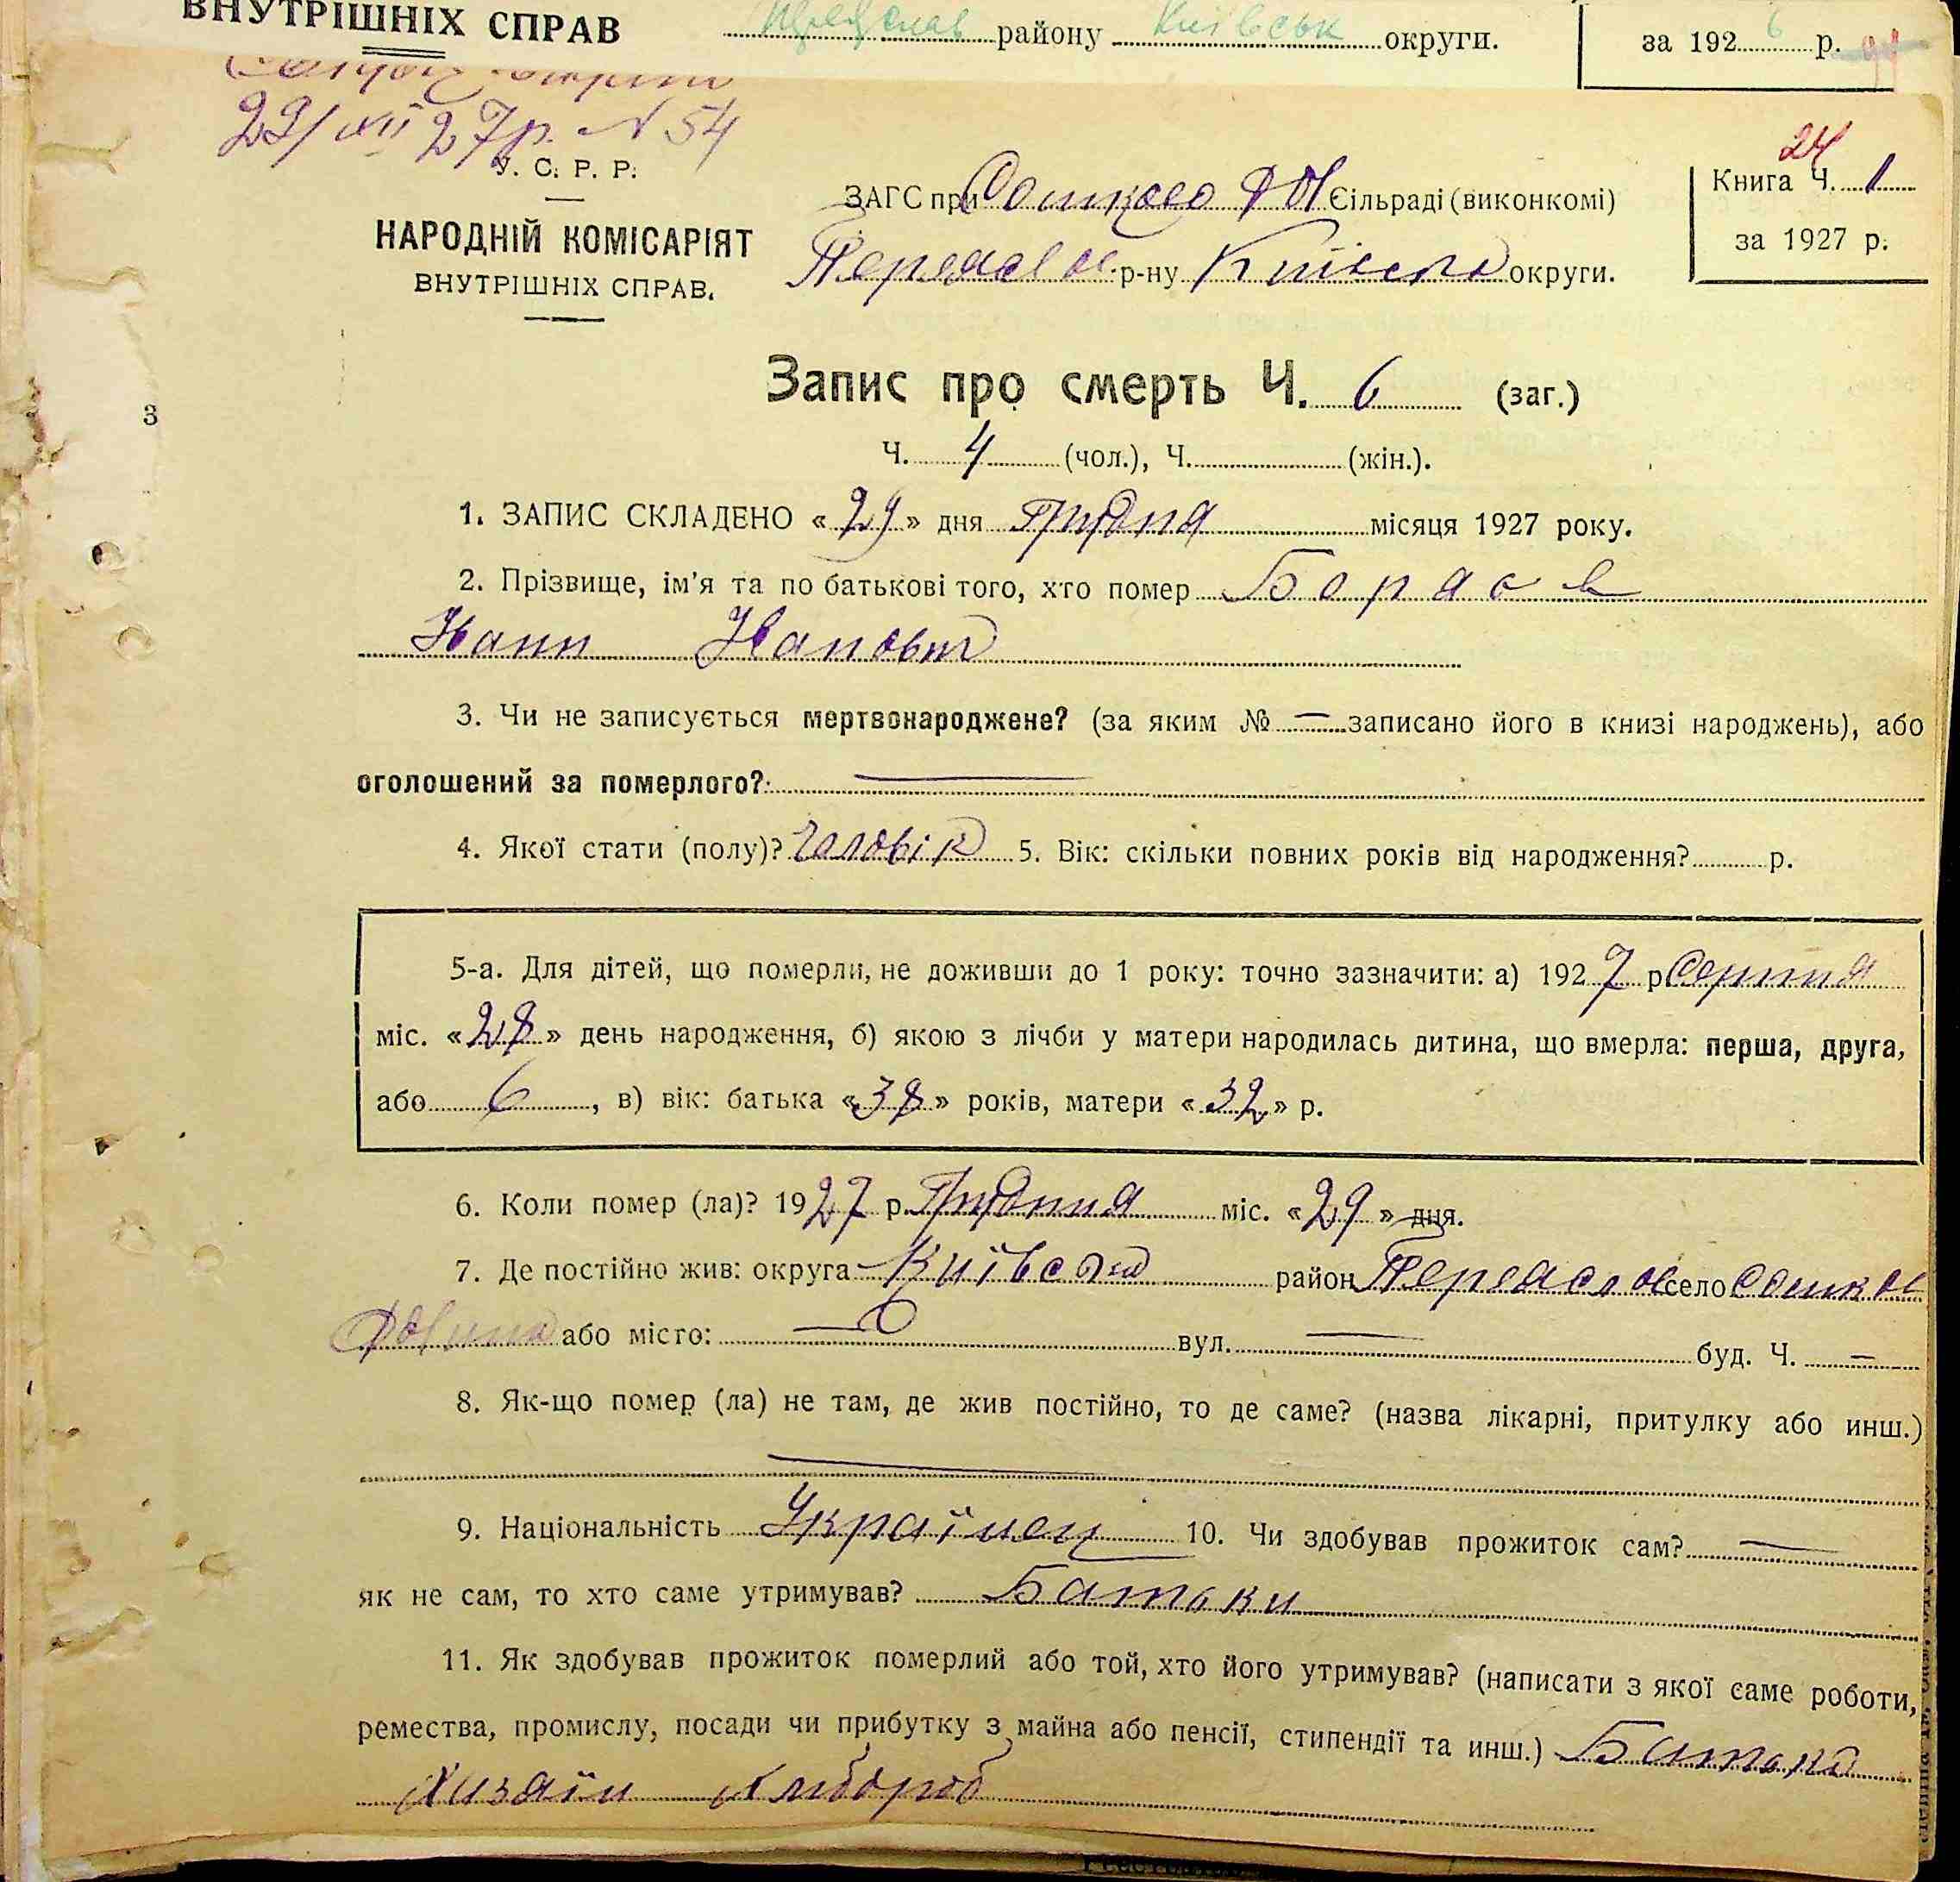 ВНУТРІШНІХ СПРАВ
району Київськ округи.
за 1926 р.
29/XII 27р. N 54
У. С. Р. Р.
НАРОДНІЙ КОМІСАРІЯТ
ВНУТРІШНІХ СПРАВ.
ЗАГС при Сільраді (виконкомі)
Переяслов р-ну Київсько округи.
24
Книга Ч. 1
за 1927 р.
Запис про смерть Ч. 6 (заг.)
3
Ч. 4 (чол.), Ч. (жін.).
1. ЗАПИС СКЛАДЕНО « 29 » дня Грудня місяця 1927 року.
2. Прізвище, ім'я та по батькові того, хто помер
Иван Иванович
3. Чи не записується мертвонароджене? (за яким № — записано його в книзі народжень), або
оголошений за померлого? —
4. Якої стати (полу)? Чоловік 5. Вік: скільки повних років від народження? р.
5-а. Для дітей, що померли, не доживши до 1 року: точно зазначити: а) 1927 р. Серпня
міс. « 28 » день народження, б) якою з лічби у матери народилась дитина, що вмерла: перша, друга,
або 6, в) вік: батька « 38 » років, матери « 32 » р.
6. Коли помер (ла)? 1927 р. Грудня міс. « 29 » дня.
7. Де постійно жив: округа Київсько район Переяслов село Сошков
або місто: — вул. — буд. Ч. —
8. Як-що помер (ла) не там, де жив постійно, то де саме? (назва лікарні, притулку або инш.)
—
9. Національність Українец 10. Чи здобував прожиток сам? —
як не сам, то хто саме утримував? Батьки
11. Як здобував прожиток померлий або той, хто його утримував? (написати з якої саме роботи,
ремества, промислу, посади чи прибутку з майна або пенсії, стипендії та инш.) Батько
Хизаїн Хлибороб